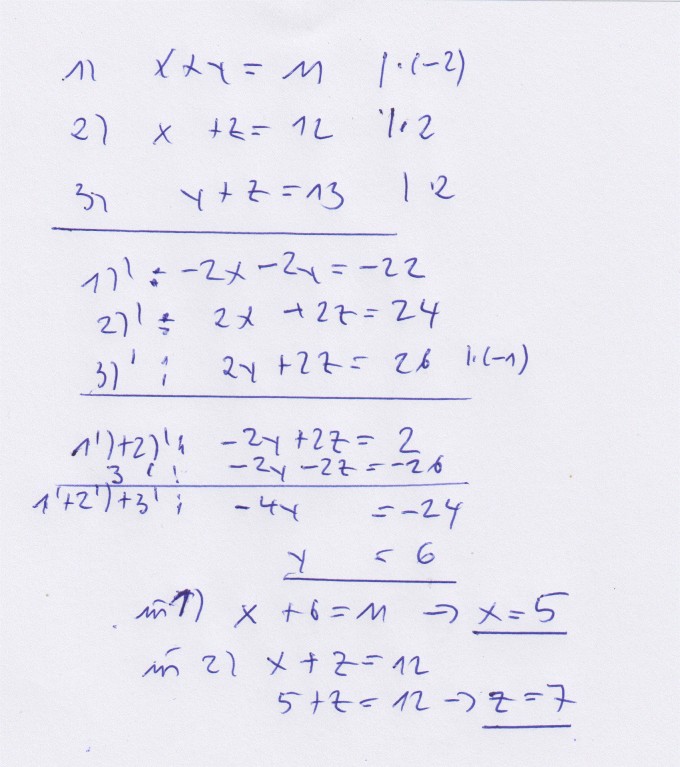 1) x+y = 11 |·(-2)
2) x +z = 12 |·2
3) y + z = 13 | ·2
1)' : -2x - 2y = -22
2)' : 2x + 2z = 24
3)' : 2y + 2z = 26 |·(-1)
1')+2)': -2y + 2z = 2
3' : -2y - 2z = -26
1'+2')+3' : -4y = -24
y = 6
in 1) x + 6 = 11 → x = 5
in 2) x + z = 12
5 + z = 12 → z = 7